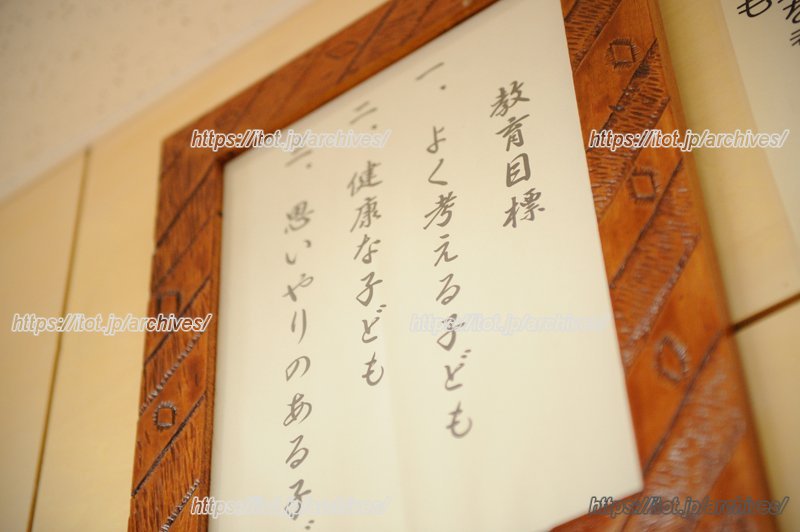 教育目標
一．よく考える子ども
二．健康な子ども
三．思いやりのある子ど
https://itot.jp/archives/
https://itot.jp/archives/
https://itot.jp/archives/
https://itot.jp/archives/
https://itot.jp/archives/
https://itot.jp/archives/